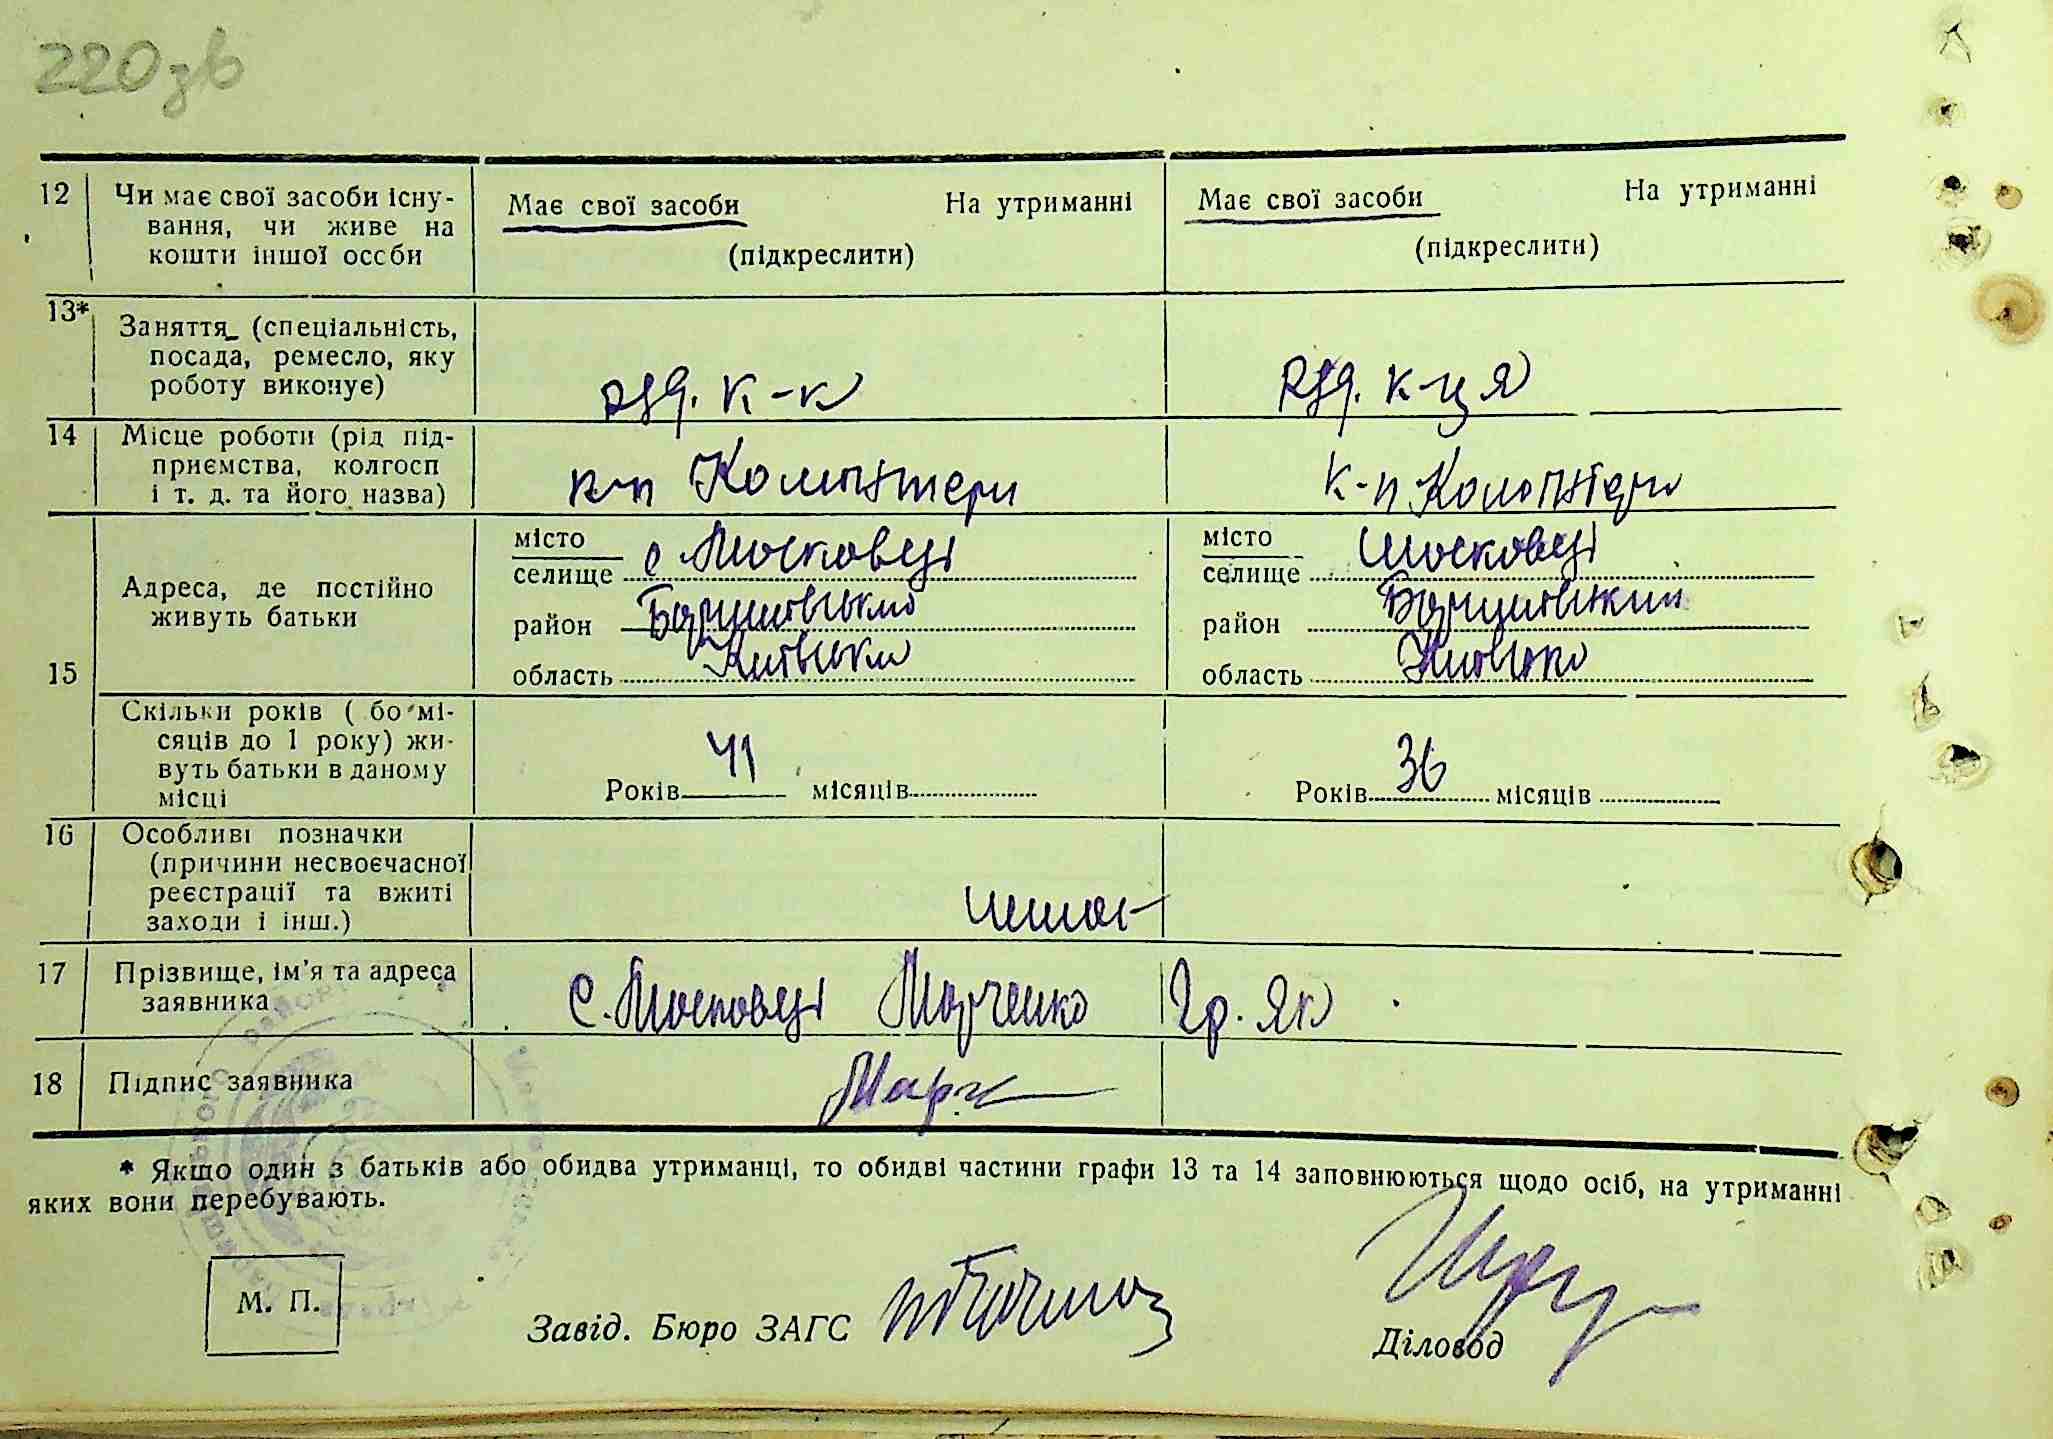 220зв
12 Чи має свої засоби існу- Має свої засоби На утриманні Має свої засоби На утриманні
вання, чи живе на
кошти іншої особи (підкреслити) (підкреслити)
13* Заняття (спеціальність,
посада, ремесло, яку
роботу виконує) ряд. к-к ряд. к-ця
14 Місце роботи (рід під-
приємства, колгосп
і т. д. та його назва) к-п Комінтерн к-п Комінтерн
15 Адреса, де постійно
живуть батьки
місто
селище с Московці
район
область Київська
місто
селище Московці
район
область Київська
Скільки років ( бо мі-
сяців до 1 року) жи-
вуть батьки в даному
місці
Років 41 місяців Років 36 місяців
16 Особливі позначки
(причини несвоєчасної
реєстрації та вжиті
заходи і інш.) немає
17 Прізвище, ім'я та адреса
заявника с. Московці Марченко Гр. Як
18 Підпис заявника Марч
* Якщо один з батьків або обидва утриманці, то обидві частини графи 13 та 14 заповнюються щодо осіб, на утриманні
яких вони перебувають.
М. П.
Завід. Бюро ЗАГС
Діловод